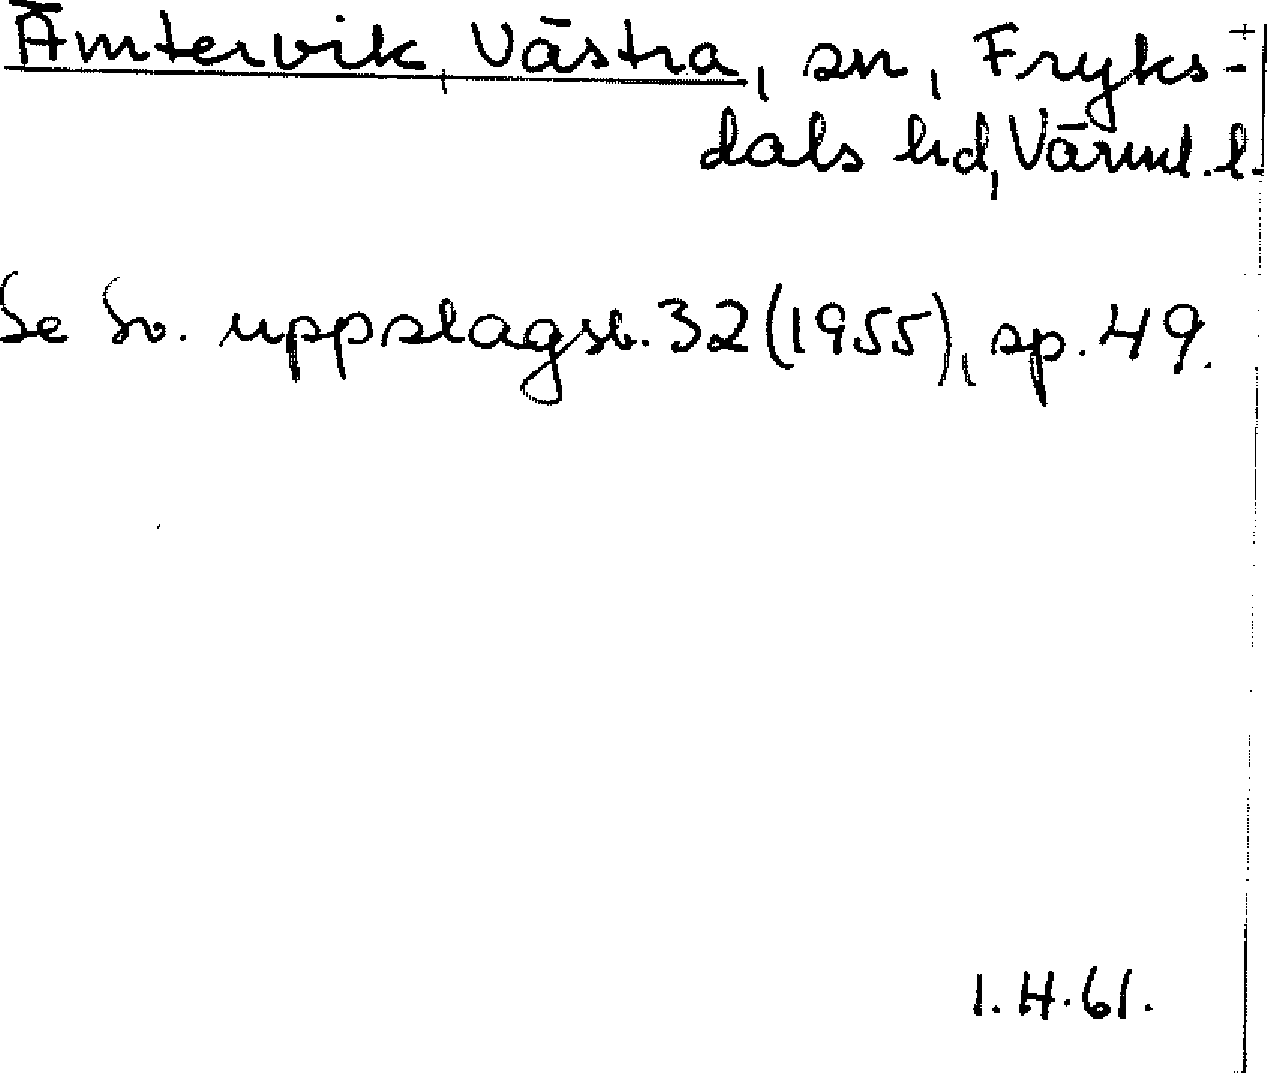 Ämtervik, Västra, sn, Fryks-
dals hd, Värml. l.
Se Sv. uppslagsb. 32 (1955), sp. 49.
I.H.61.